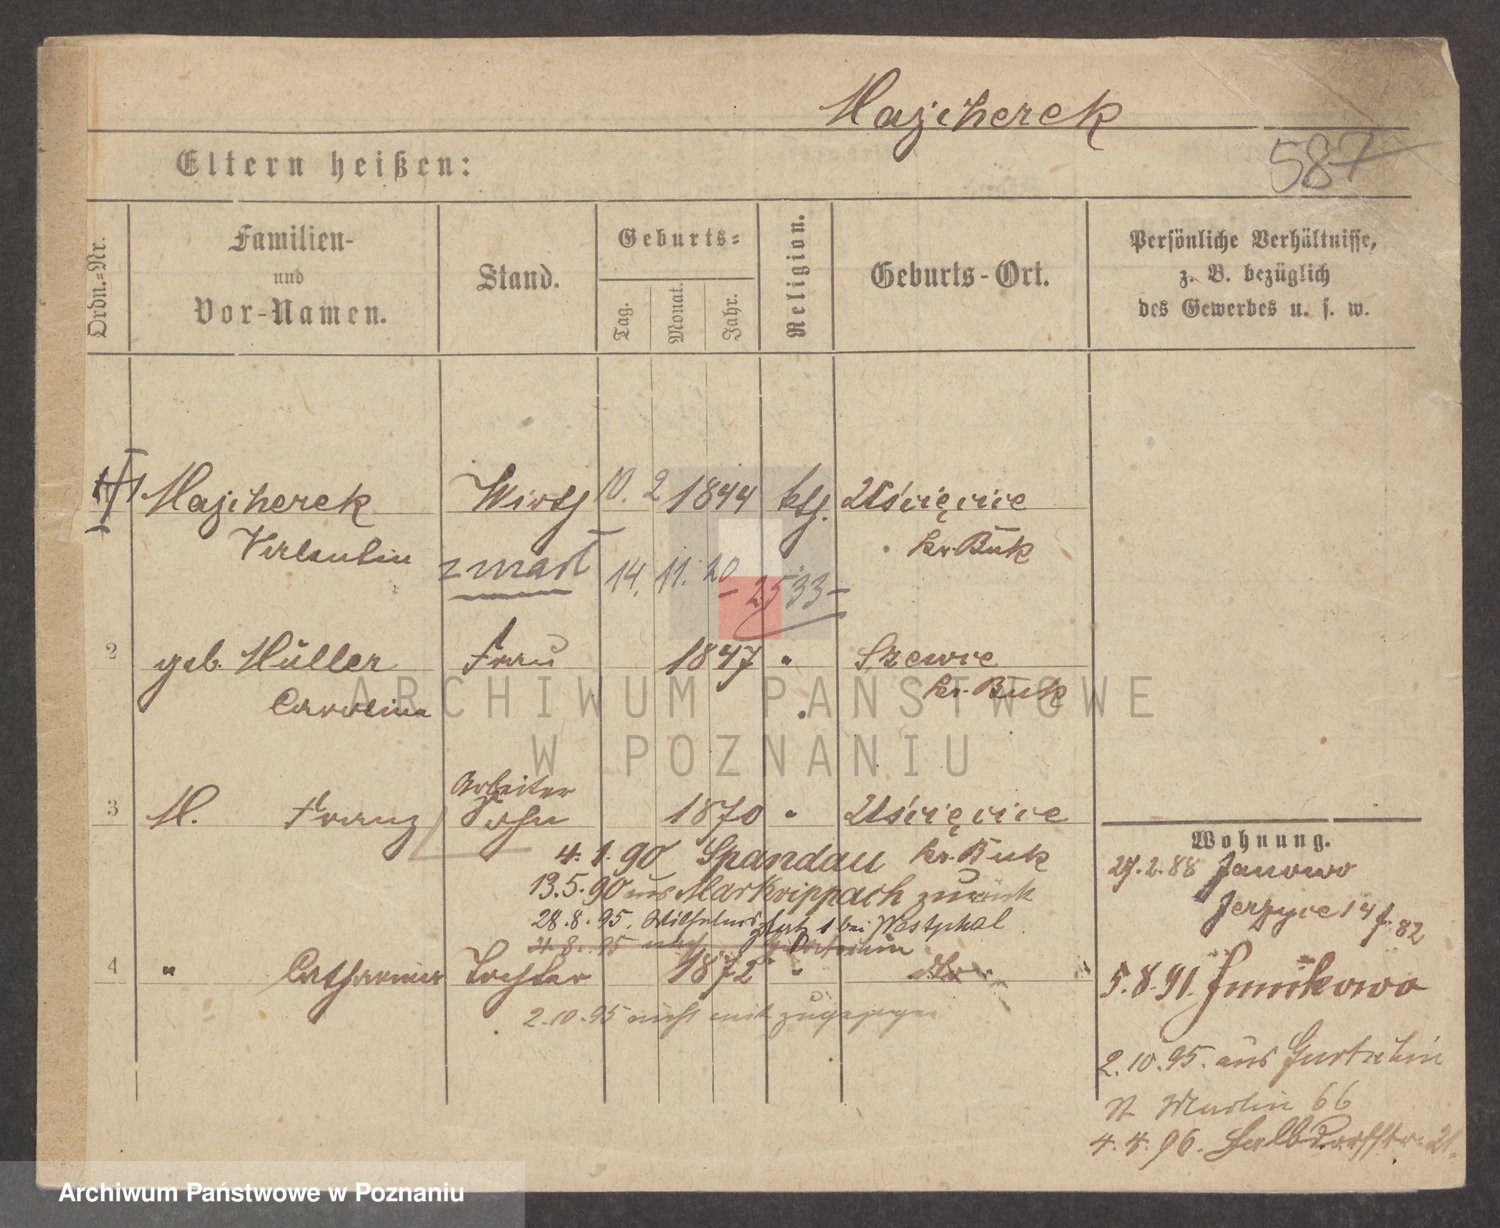 Majcherek
587
Eltern heißen:
Ordn.-Nr.
Familien-
und
Vor-Namen.
Stand.
Geburts-
Tag.
Monat.
Jahr.
Religion.
Geburts-Ort.
Persönliche Verhältnisse,
z. B. bezüglich
des Gewerbes u. s. w.
1 Majcherek Wirth 10. 2 1844 kth. Uścięcice
Valentin kr. Buk
zmarł 14. 11. 20 - 2533 -
2 geb. Müller Frau 1847 " Szewce
Carolina kr. Buk
ARCHIWUM PAŃSTWOWE
W POZNANIU
Arbeiter
3 M. Franz Sohn 1870 " Uścięcice
4. 1. 90 Spandau kr. Buk
13. 5. 90 aus Markrippach zurück
28. 8. 95. Wilhelmsplatz 1 bei Westphal
4. 8. 95 nach
4 " Catharina Tochter 1872 "
2. 10. 95 nicht mit zugezogen
Wohnung.
27. 2. 88 Janowo
Jerzyce 147
82
5. 8. 91. Junikowo
2. 10. 95. aus Gurtschin
St. Martin 66
4. 4. 96. Halbdorfstr. 21.
Archiwum Państwowe w Poznaniu